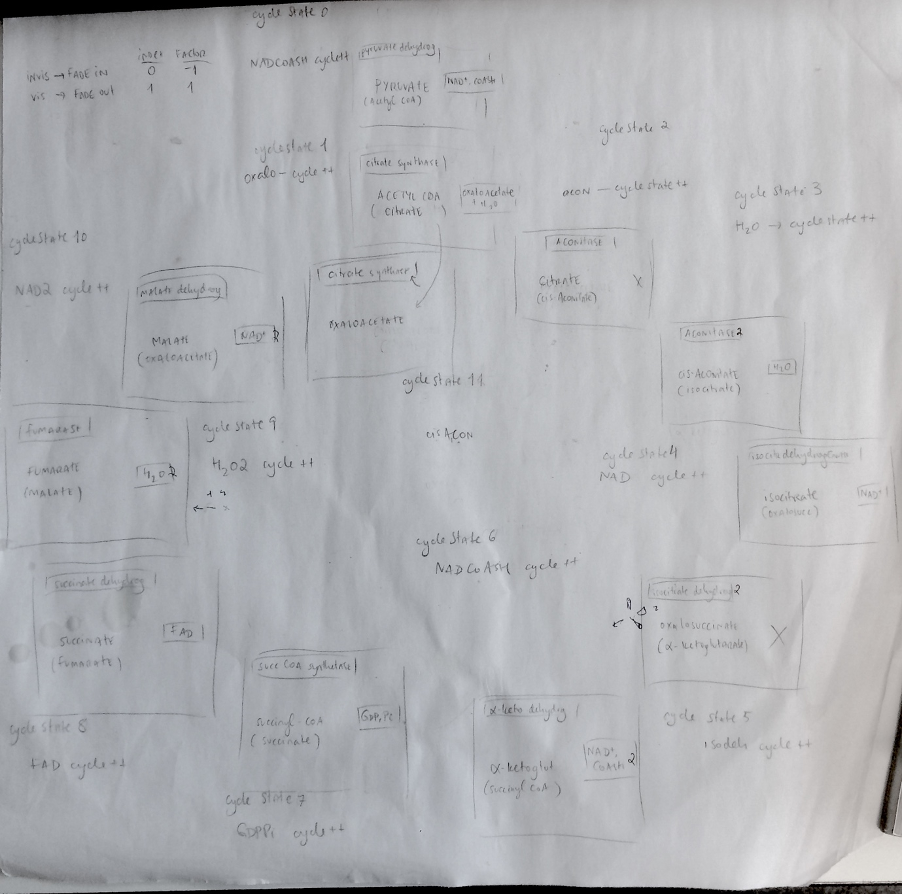 cycle State 0
INDEX FACTOR
INVIS → FADE IN 0 -1
VIS → FADE OUT 1 1
NADCOASH cycle++
pyruvate dehydrog
PYRUVATE
(Acetyl COA)
NAD+, COASH
cycle State 1
oxalo - cycle ++
citrate synthase
ACETYL COA
(CITRATE)
oxaloacetate
+ H2O
cycle State 2
acon - cycle state ++
ACONITASE
CITRATE
(cis-Aconitate)
X
cycle State 3
H2O → cycle state ++
ACONITASE 2
cis-Aconitate
(isocitrate)
H2O
cycle State 10
NAD2 cycle ++
Malate dehydrog
MALATE
(OXALOACETATE)
NAD+ 2
citrate synthase
OXALOACETATE
cycle State 11
cisACON
fumarase
FUMARATE
(MALATE)
H2O 2
cycle State 9
H2O2 cycle ++
cycle State 4
NAD cycle ++
isocitrate
NAD+
cycle State 6
NADCoASH cycle ++
succinate dehydrog
succinate
(fumarate)
FAD
cycle State 8
FAD cycle ++
succ COA synthetase
succinyl-COA
(succinate)
GDP, Pi
cycle State 7
GDPPi cycle ++
α-keto dehydrog
α-ketoglut
(succinyl COA)
NAD+,
COASH 2
isocitrate dehydrog 2
oxalosuccinate
(α-ketoglutarate)
X
cycle State 5
isodeh cycle ++